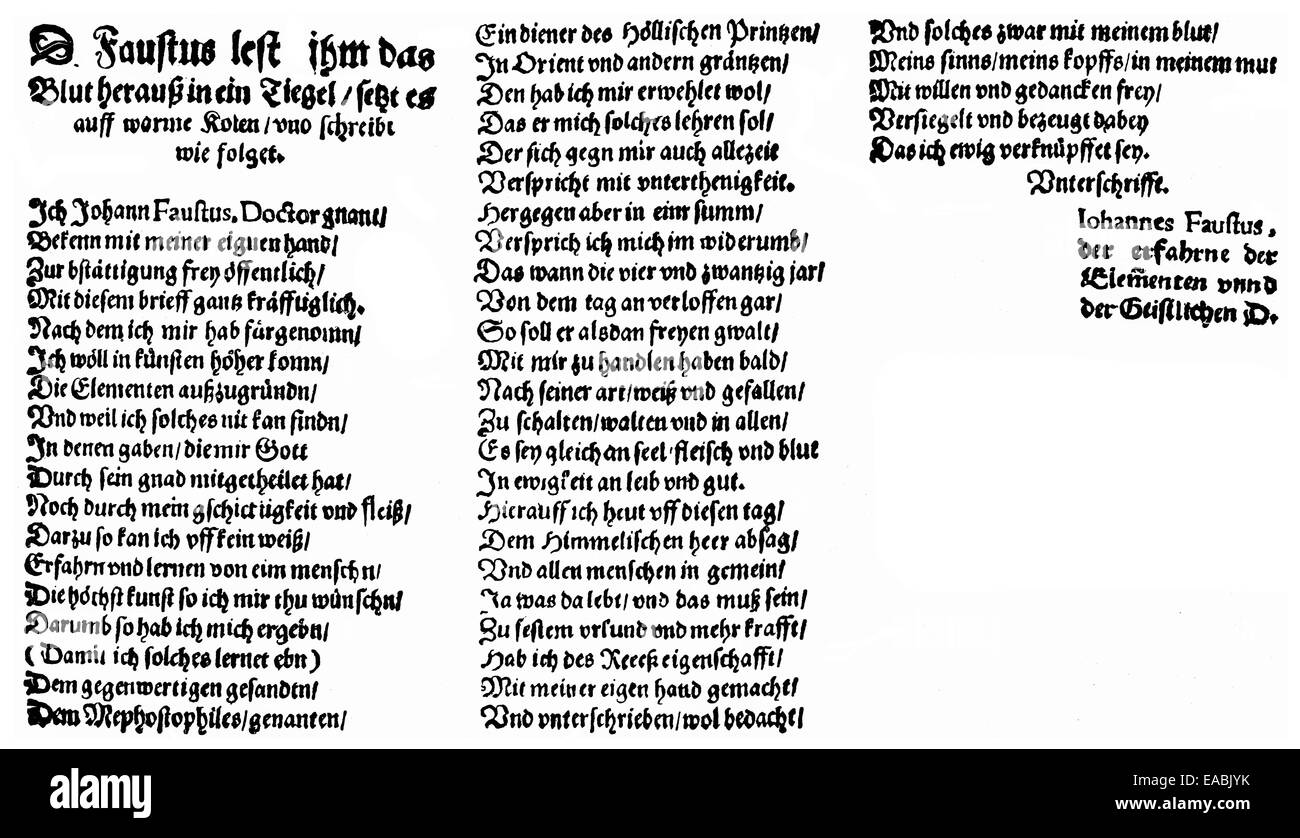 D. Faustus lest ihm das
Blut herauß in ein Tiegel / setzt es
auff warme Kolen / vnd schreibt
wie folget.
Ich Johann Faustus, Doctor gnant /
Bekenn mit meiner eignen hand /
Zur bstättigung frey öffentlich /
Mit diesem brieff gantz kräfftiglich.
Nach dem ich mir hab fürgenomn /
Ich wöll in künsten höher komn /
Die Elementen außzugründn /
Vnd weil ich solches nit kan findn /
In denen gaben / die mir Gott
Durch sein gnad mitgetheilet hat /
Noch durch mein gschicktigkeit vnd fleiß /
Darzu so kan ich vff kein weiß /
Erfahrn vnd lernen von eim menschn /
Die höchst kunst so ich mir thu wünschn /
Darumb so hab ich mich ergebn /
( Damit ich solches lernet ebn )
Dem gegenwertigen gesandtn /
Dem Mephostophiles / genanten /
Ein diener des Höllischen Printzen /
In Orient vnd andern gräntzen /
Den hab ich mir erwehlet wol /
Das er mich solches lehren sol /
Der sich gegn mir auch allezeit
Verspricht mit vnterthenigkeit.
Hergegen aber in einr summ /
Versprich ich mich im widerumb /
Das wann die vier vnd zwantzig jar /
Von dem tag an verloffen gar /
So soll er alsdan freyen gwalt /
Mit mir zu handlen haben bald /
Nach seiner art / weiß vnd gefallen /
Zu schalten / walten vnd in allen /
Es sey gleich an seel / fleisch vnd blut
In ewigkeit an leib vnd gut.
Hierauff ich heut vff diesen tag /
Dem Himmelischen heer absag /
Vnd allen menschen in gemein /
Ja was da lebt / vnd das muß sein /
Zu festem vrkund vnd mehr krafft /
Hab ich des Receß eigenschafft /
Mit meiner eigen hand gemacht /
Vnd vnterschrieben / wol bedacht /
Vnd solches zwar mit meinem blut /
Meins sinns / meins kopffs / in meinem mut
Mit willen vnd gedancken frey /
Versiegelt vnd bezeugt dabey
Das ich ewig verknüpffet sey.
Vnterschrifft.
Iohannes Faustus,
der erfahrne der
Elem̃enten vnnd
der Geistlichen D.
alamy
Image ID: EABJYK
www.alamy.com